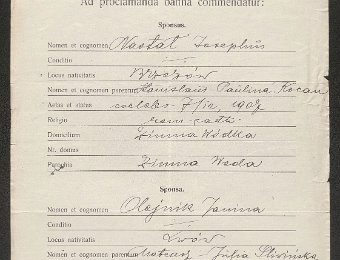 Ad proclamanda banna commendatur:
Sponsus.
Nomen et cognomen Nastał Josephus
Conditio
Locus nativitatis Brzozów
Nomen et cognomen parentum Stanislaus Paulina Kocan
Aetas et status caelebs 7/12. 1907
Religio rom-cath.
Domicilium Zimna Wódka
Nr. domus
Parochia Zimna Woda
Sponsa.
Nomen et cognomen Olejnik Janina
Conditio
Locus nativitatis Lwów
Nomen et cognomen parentum Julia Śliwińska